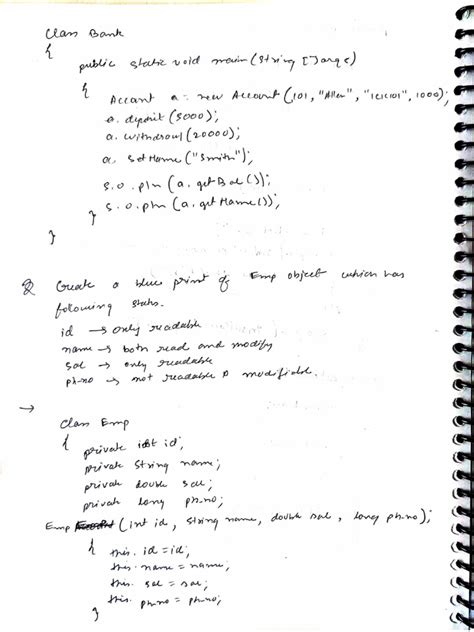 Class Bank
{
public static void main(String []args)
{
Account a = new Account(101, "Allen", "icici01", 1000);
a. deposit(5000);
a. withdrawl(20000);
a. setName("Smith");
s.o.pln(a.getBal());
s.o.pln(a.getName());
}
}
Q Create a blue print of Emp object which has
following states.
id → only readable
name → both read and modify
sal → only readable
ph.no → not readable modifiable.
→
Class Emp
{ private int id;
private String name;
private double sal;
private long ph.no;
Emp (int id, String name, double sal, long ph.no);
{ this. id = id;
this. name = name;
this. sal = sal;
this. ph.no = ph.no;
}